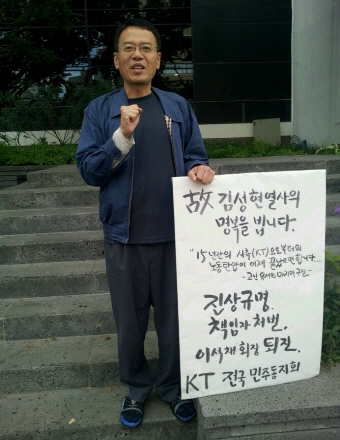 故 김성현열사의
명복을 빕니다.
"15년만의 사측(KT)으로부터의
노동탄압이 이제 끝났으면합니다...
-고인 유서의 마지막 구절-
진상규명.
책임자 처벌.
이석채 회장 퇴진.
KT 전국 민주동지회